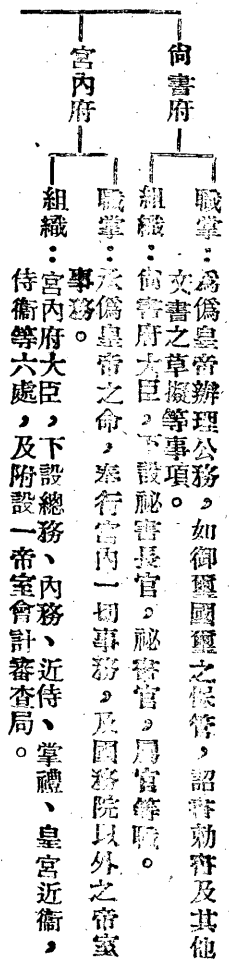 尙書府
職掌：爲僞皇帝辦理公務，如御璽國璽之保管，詔書勅書及其他
文書之草擬等事項。
組織：尙書府大臣，下設祕書長官，祕書官，屬官等職。
宮內府
職掌：承僞皇帝之命，奉行宮內一切事務，及國務院以外之帝室
事務。
組織：宮內府大臣，下設總務、內務、近侍、掌禮、皇宮近衞，
侍衞等六處，及附設一帝室會計審查局。